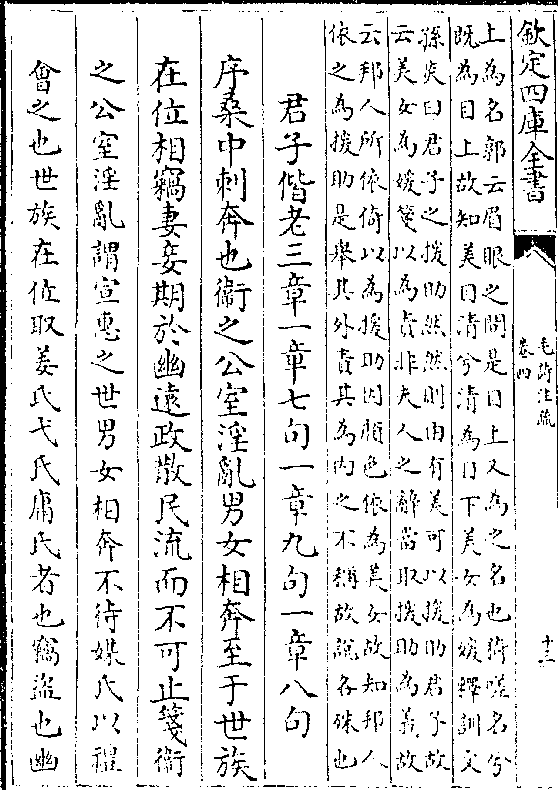 欽定四庫全書
毛詩注疏
卷四
十三
上為名郭云眉眼之間是目上又為之名也猗嗟名兮
既為目上故知美目清兮清為目下美女為媛釋訓文
孫炎曰君子之援助然然則由有美可以援助君子故
云美女為媛箋以為責非夫人之辭當取援助為義故
云邦人所依倚以為援助因顔色依為美女故知邦人
依之為援助是舉其外責其為内之不稱故說各殊也
君子偕老三章一章七句一章九句一章八句
序桑中刺奔也衛之公室淫亂男女相奔至于世族
在位相竊妻妾期於幽遠政散民流而不可止箋衛
之公室淫亂謂宣惠之世男女相奔不待媒氏以禮
會之也世族在位取姜氏弋氏庸氏者也竊盜也幽